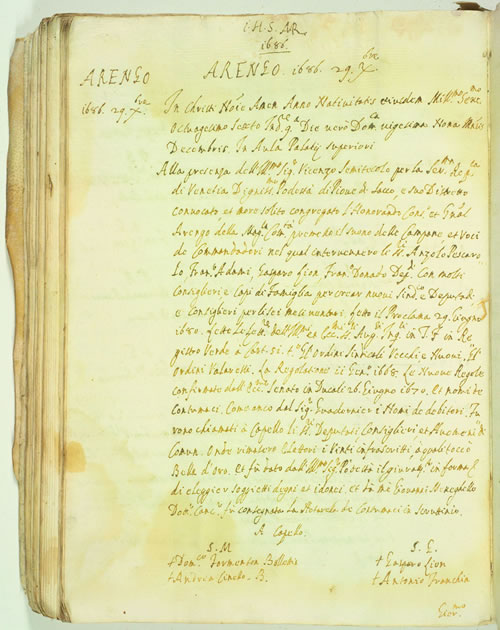 I.H.S. AR
1686.
ARENGO
1686. 29. Xbre
ARENGO. 1686. 29. Xbre
In Christi Noie Amen Anno Nativitatis eiusdem Mill.mo
octuagesimo Sexto Ind.e 9.a Die verò Dom.ca vigesima Nona Mensis
Decembris. In Aula Palatij superiori
Alla presenza dell'Ill.mo Sig.r Vicenzo Semitecolo per la Ser.ma Rep.ca
di Venetia Degniss.mo Podestà di Pieve di Sacco, e suo Distretto
convocato, et more solito congregato l'Honorando Cons.o et G'nal
Arengo della Mag.ca Com.tà premesso il suono delle Campane et voci
de Commandadori nel qual intervennero li SS.ri Anzolo Pescaro
Lo Fran.co Adami, Gasparo Lion Fran.co Donado Dep.ti Con molti
Consiglieri e Capi di Famiglia per crear nuovi Sind.ci e Deputadi
e Consiglieri per li sei mesi venturi, fatto il Proclama 29. Giugno
1680. Lette le in Re
gistro Verde à Cart. 51. Ordini Sindicali Vecchi e Nuovi, Et
ordini Valaretti. La Regolatione 1668. Le Nuove Regole
confermate dall'Ecc.mo Senato in Ducali 26. Giugno 1670. Et nomi de
contumaci, Come anco dal Sig.r Quadernier i Nomi de debitori. Fu
rono chiamati à Capello li SS.ri Deputadi Consiglieri et
Comun. Onde rimasero Elettori i Venti infrascritti, à quali toccò
Balla d'oro. Et fù dato dall'Ill.mo Sig.r Podestà il giuram.to in forma
di elegger soggietti degni et idonei. et da me Giovanni
Canc.r fù consegnata la Poterela de Contumaci in Scrutinio.
A Capello.
S. M
S. E.
† Dom.co Formenton
† Gasparo Lion
† Andrea B.
† Antonio Franchin